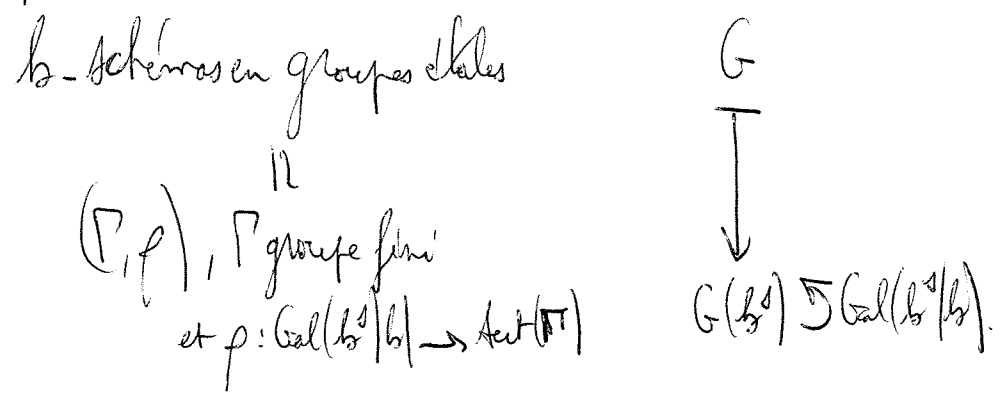 k-schémas en groupes étales
G
(Γ, ρ), Γ groupe fini
et ρ : Gal(k^s|k) → Aut(Γ)
G(k^s) ↺ Gal(k^s|k).